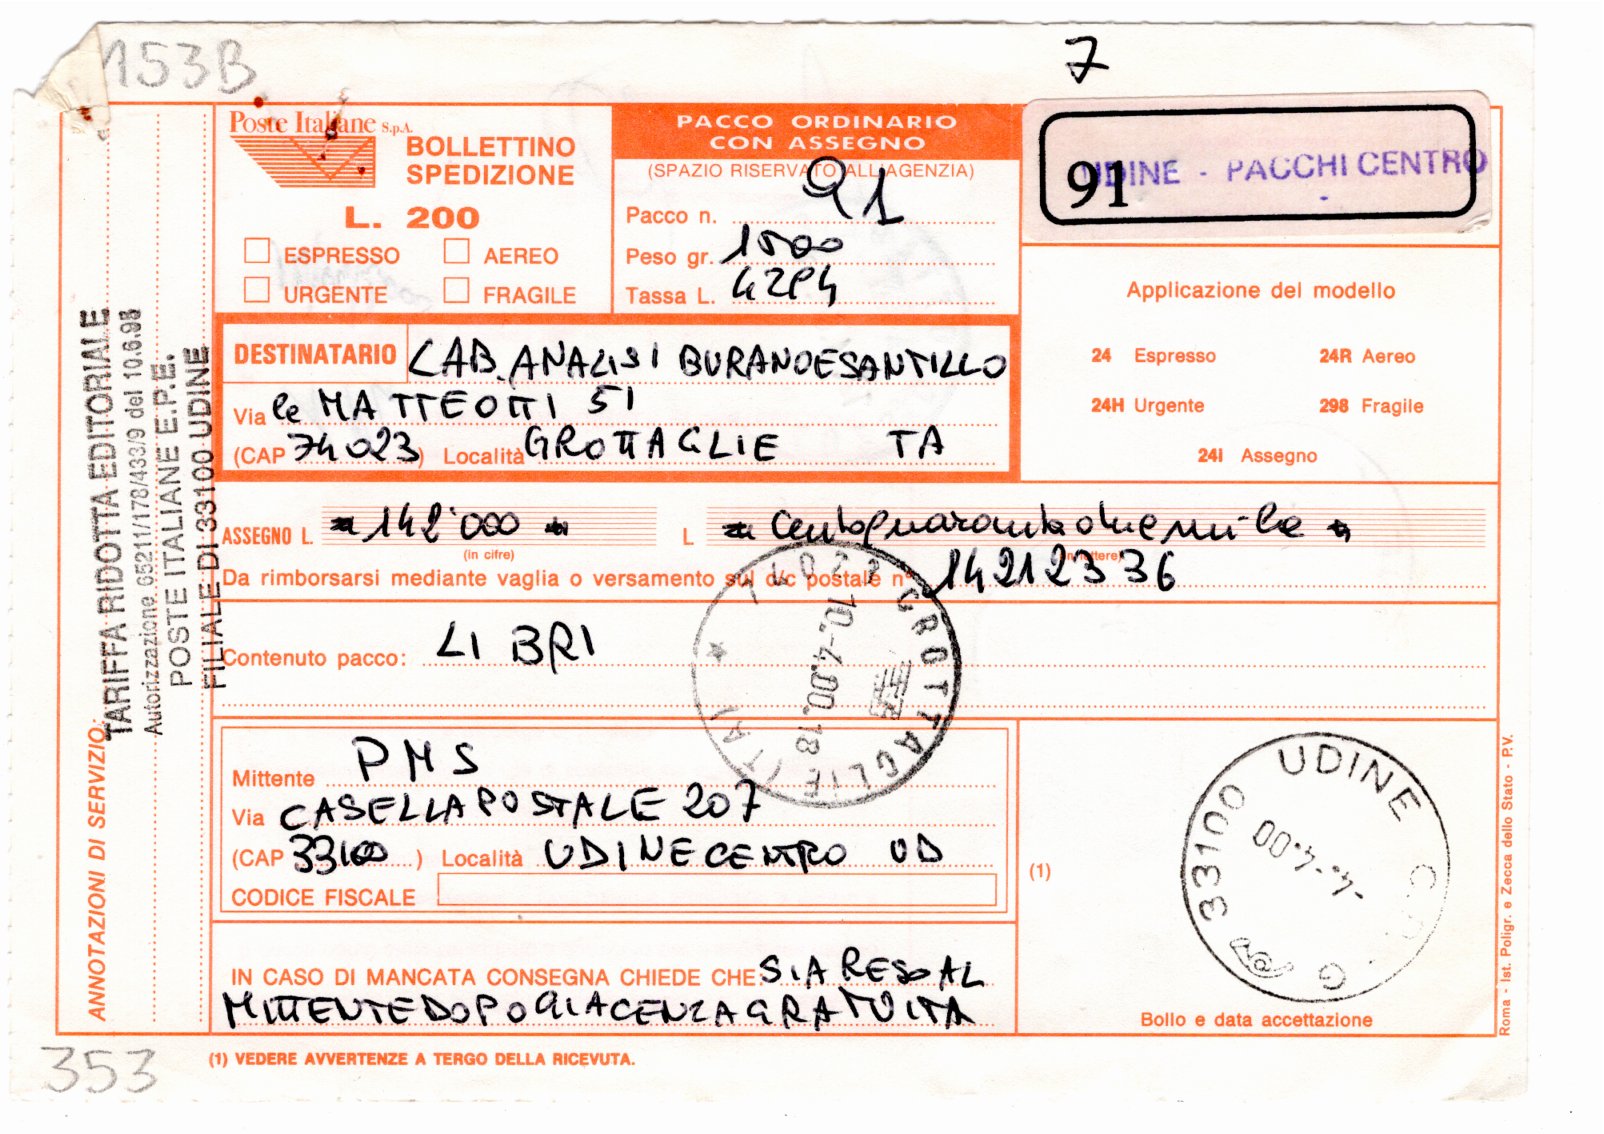 153B
7
Poste Italiane S.p.A.
BOLLETTINO
SPEDIZIONE
L. 200
ESPRESSO AEREO
URGENTE FRAGILE
PACCO ORDINARIO
CON ASSEGNO
(SPAZIO RISERVATO ALL'AGENZIA)
Pacco n. 91
Peso gr. 1500
Tassa L.
91 UDINE - PACCHI CENTRO
Applicazione del modello
24 Espresso 24R Aereo
24H Urgente 298 Fragile
24I Assegno
DESTINATARIO LAB. ANALISI BURANO E SANTILLO
Via le MATTEOTTI 51
(CAP 74023) Località GROTTAGLIE TA
ASSEGNO L. 142'000 L centoquarantaduemila
(in cifre) (in lettere)
Da rimborsarsi mediante vaglia o versamento sul c/c postale n° 14212336
Contenuto pacco: LIBRI
74023 GROTTAGLIE (TA) *
10.-4.00.18
Mittente PMS
Via CASELLA POSTALE 207
(CAP 33100) Località UDINE CENTRO UD
CODICE FISCALE
(1)
33100 UDINE C.P.
-4.-4.00
Bollo e data accettazione
IN CASO DI MANCATA CONSEGNA CHIEDE CHE: SIA RESO AL
MITTENTE DOPO GIACENZA GRATUITA
(1) VEDERE AVVERTENZE A TERGO DELLA RICEVUTA.
353
ANNOTAZIONI DI SERVIZIO:
TARIFFA RIDOTTA EDITORIALE
Autorizzazione 65211/178/433/9 del 10.6.98
POSTE ITALIANE E.P.E.
FILIALE DI 33100 UDINE
Roma - Ist. Poligr. e Zecca dello Stato - P.V.